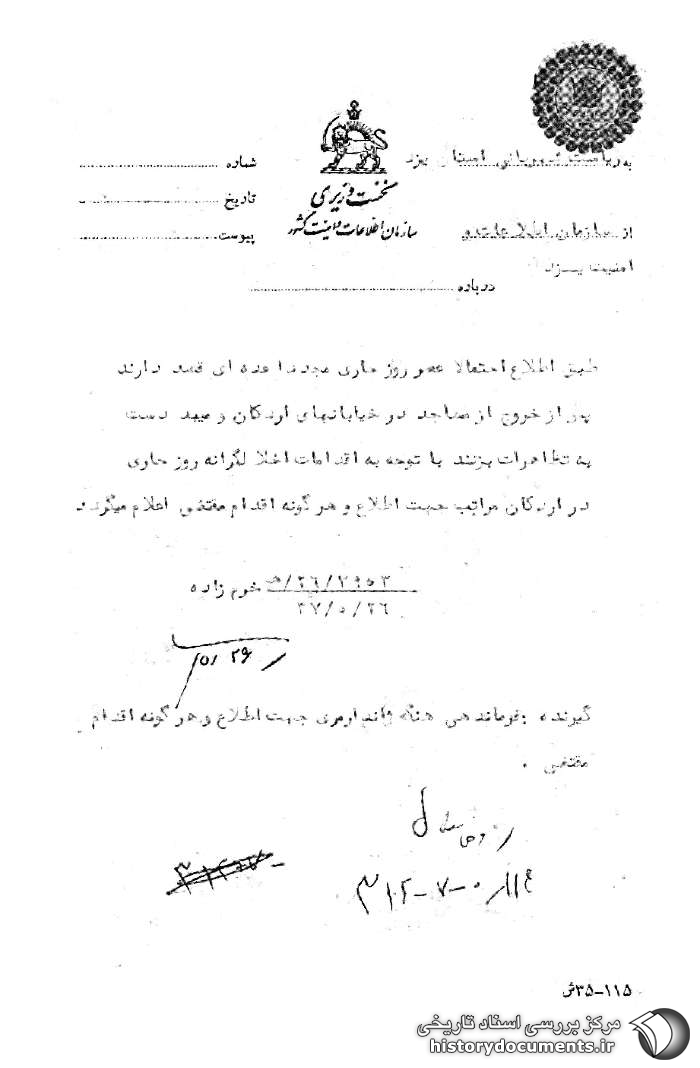 به ریاست شهربانی استان یزد
شماره
نخست وزیری
تاریخ
سازمان اطلاعات و امنیت کشور
از سازمان اطلاعات و
پیوست
امنیت یزد
درباره
طبق اطلاع احتمالا عصر روز جاری مجددا عده ای قصد دارند
پس از خروج از مساجد در خیابانهای اردکان و میبد دست
به تظاهرات بزنند با توجه به اقدامات اخلا لگرانه روز جاری
در اردکان مراتب جهت اطلاع و هر گونه اقدام مقتضی اعلام میگردد
خرم زاده
۳۷/۵/۲۶
۲۶
گیرنده فرماندهی هنگ ژاندارمری جهت اطلاع و هر گونه اقدام
مقتضی .
۳۵-۱۱۵ش
مرکز بررسی اسناد تاریخی
historydocuments.ir